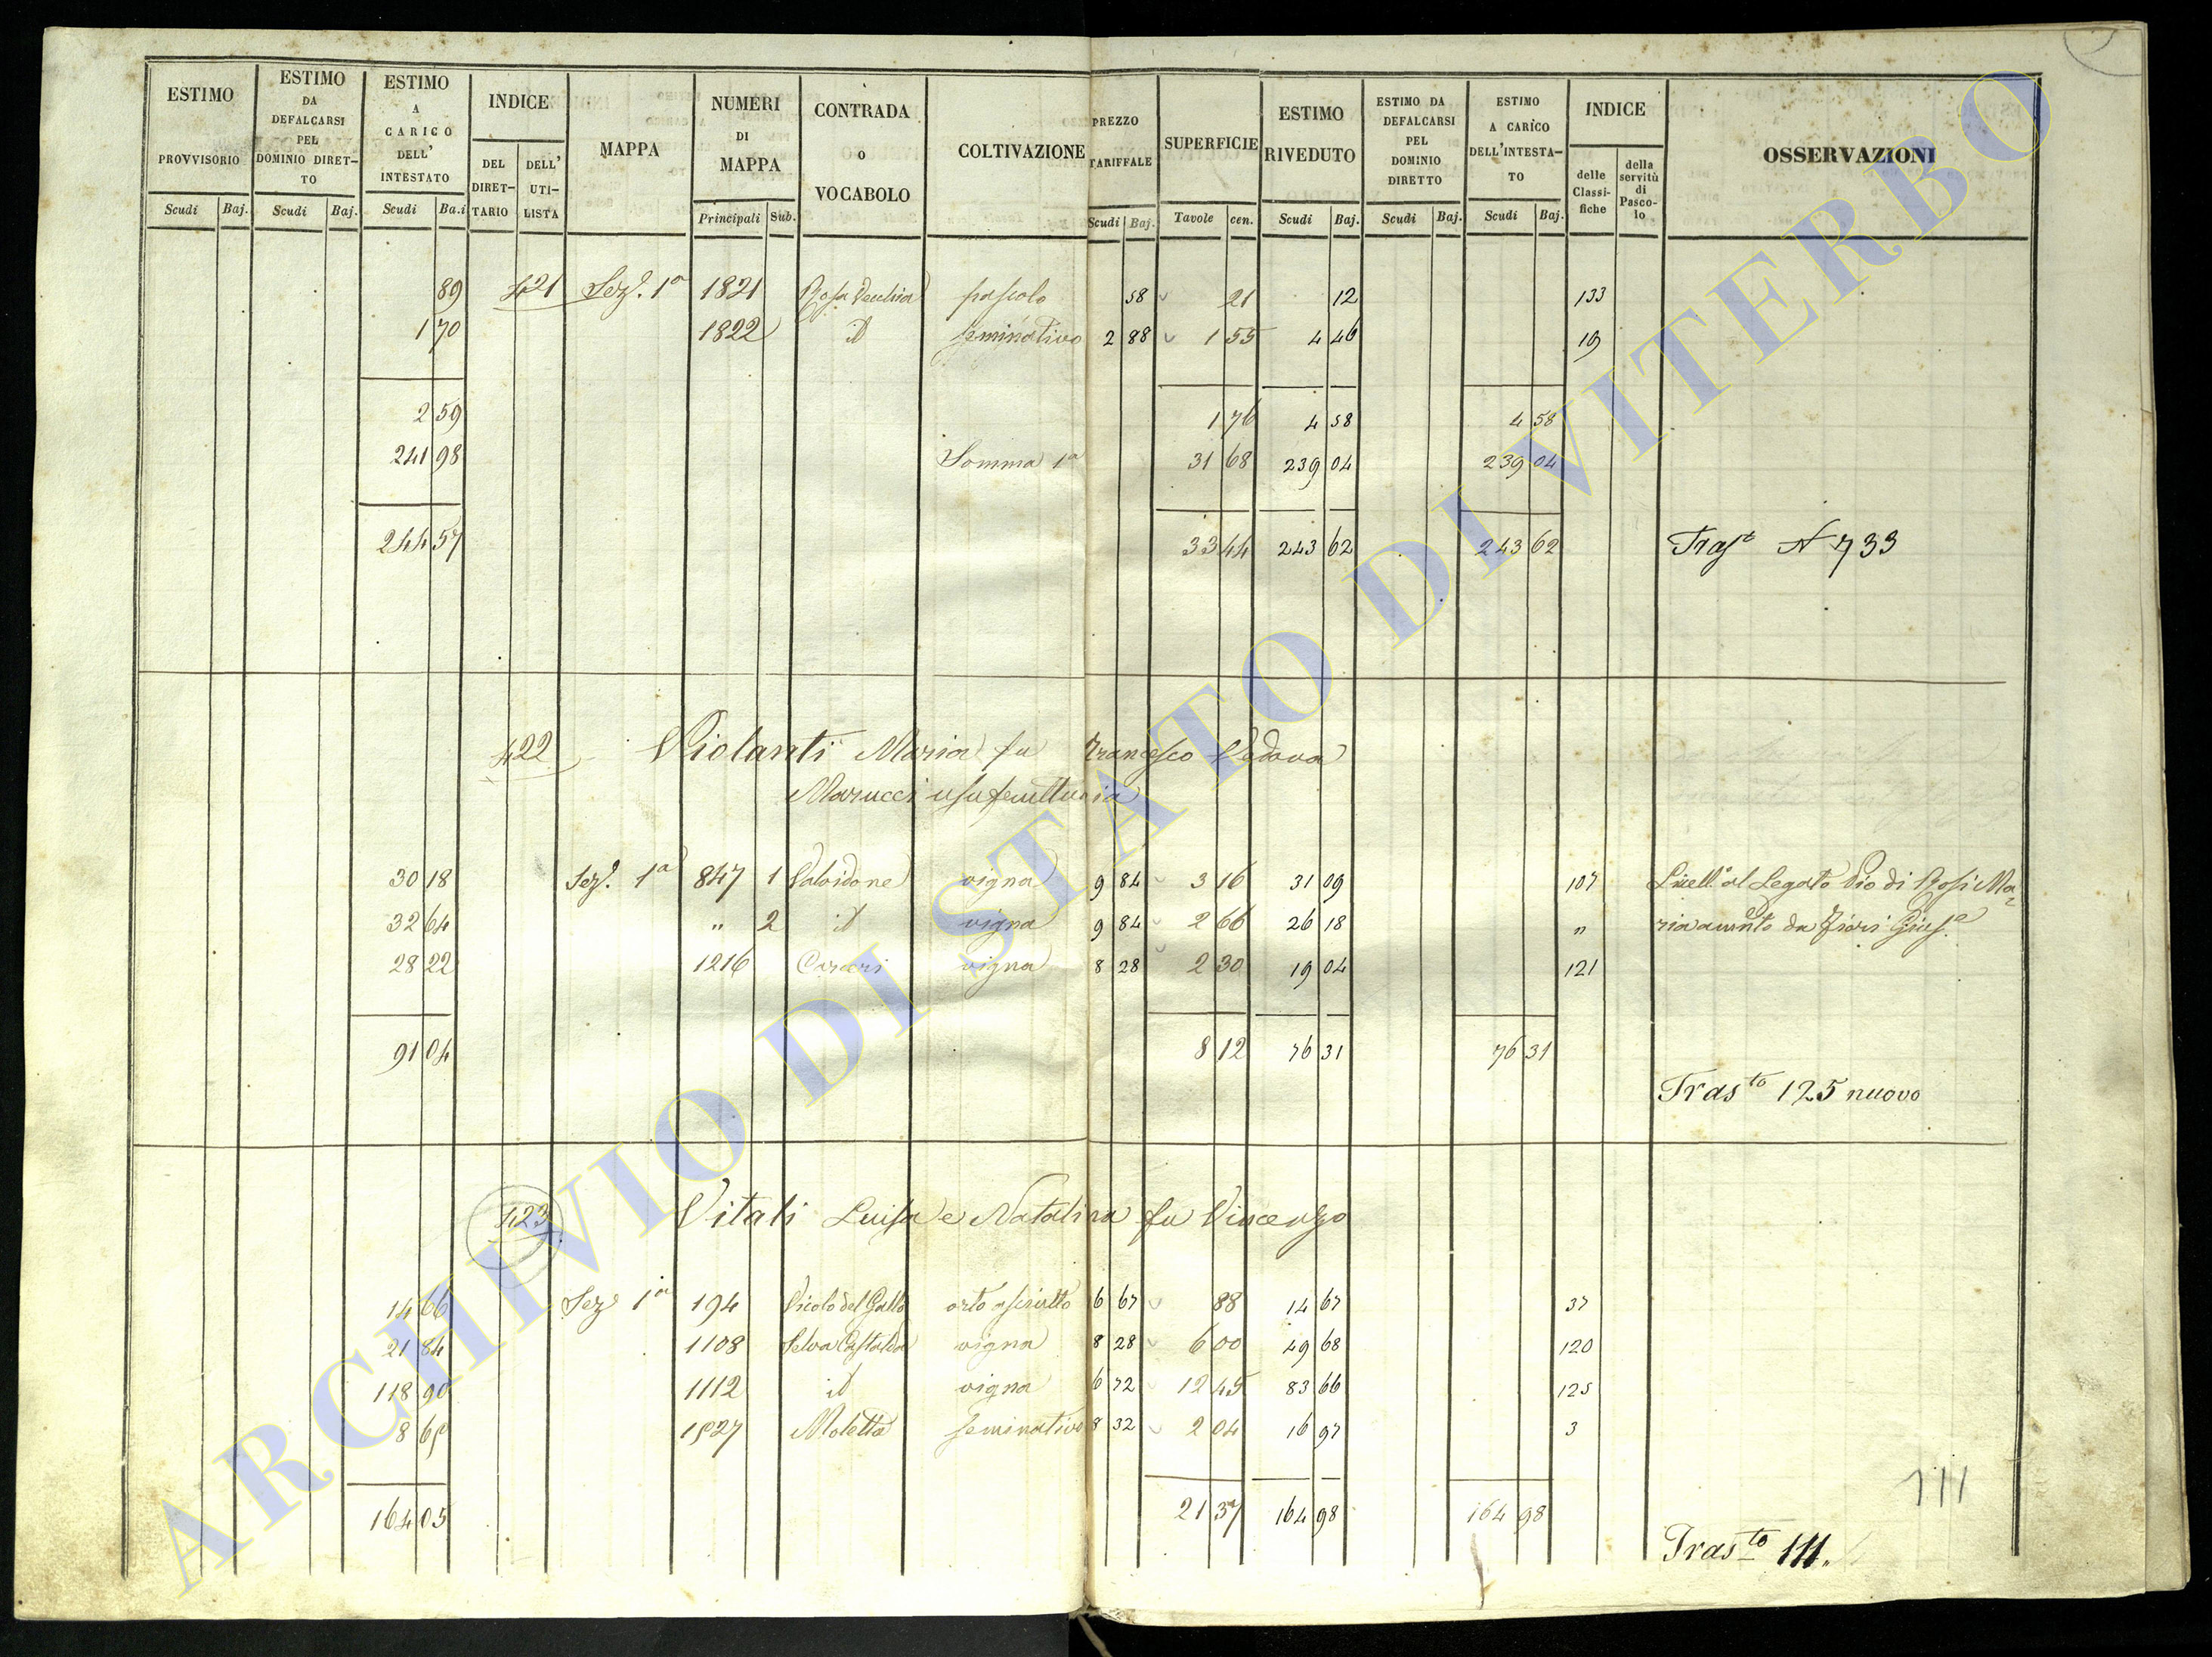 ESTIMO PROVVISORIO Scudi Baj. ESTIMO DA DEFALCARSI PEL DOMINIO DIRET-TO Scudi Baj. ESTIMO A CARICO DELL' INTESTATO Scudi Ba.i INDICE DEL DIRET-TARIO DELL' UTI-LISTA MAPPA NUMERI DI MAPPA Principali Sub. CONTRADA O VOCABOLO COLTIVAZIONE PREZZO TARIFFALE Scudi Baj. SUPERFICIE Tavole cen. ESTIMO RIVEDUTO Scudi Baj. ESTIMO DA DEFALCARSI PEL DOMINIO DIRETTO Scudi Baj. ESTIMO A CARICO DELL'INTESTA-TO Scudi Baj. INDICE delle Classi-fiche della servitù di Pasco-lo OSSERVAZIONI
89 421 Sez.e 1a 1821 Vecchia pascolo 58 21 12 133
1 70 1822 id seminativo 2 88 1 55 4 46 19
2 59 1 76 4 58 4 58
241 98 Somma 1a 31 68 239 04 239 04
244 57 33 44 243 62 243 62 Trast N 733
422 Violanti Maria fu Francesco Vedova
Marucci usufruttuaria
30 18 Sez.e 1a 847 1 Valvidone vigna 9 84 3 16 31 09 107 Livell.o al Legato Pio di Rosi Ma=
32 64 " 2 id vigna 9 84 2 66 26 18 " ria da Fiori Gius.e
28 22 1216 vigna 8 28 2 30 19 04 121
91 04 8 12 76 31 76 31
Trasto 125 nuovo
423 Vitali Luisa e Natalina fu Vincenzo
14 66 Sez.e 1a 194 Vicolo del Gallo orto asciutto 6 67 88 14 67 37
21 84 1108 Selva Castalda vigna 8 28 6 00 49 68 120
118 90 1112 id vigna 6 72 12 45 83 66 125
8 65 1527 Moletta seminativo 8 32 2 04 16 97 3
164 05 21 37 164 98 164 98
111
Trasto 111.
ARCHIVIO DI STATO DI VITERBO